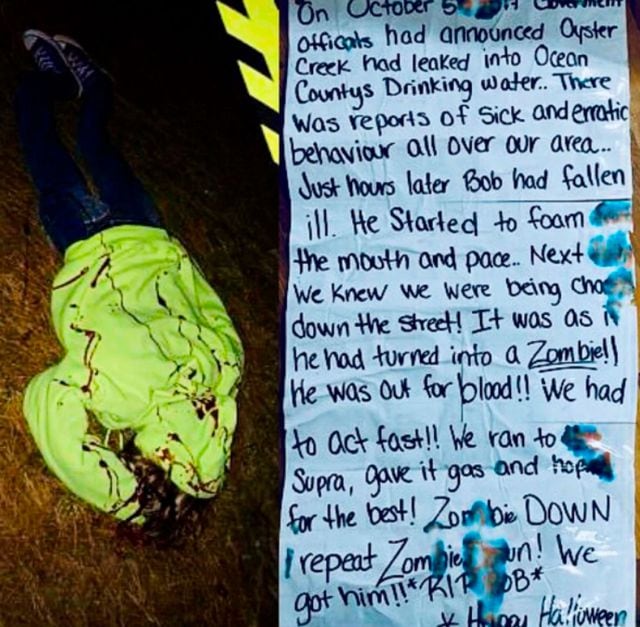 On October 5
officals had announced Oyster
Creek had leaked into Ocean
Countys Drinking water.. There
was reports of sick and erratic
behaviour all over our area...
Just hours later Bob had fallen
ill. He Started to foam
the mouth and pace.. Next
We Knew we were being
down the street! It was as
he had turned into a Zombie!!
He was out for blood!! We had
to act fast!! We ran to
Supra, gave it gas and
for the best! Zombie DOWN
I repeat Zombie! We
got him!! *RIP BOB*
* Happy Halloween